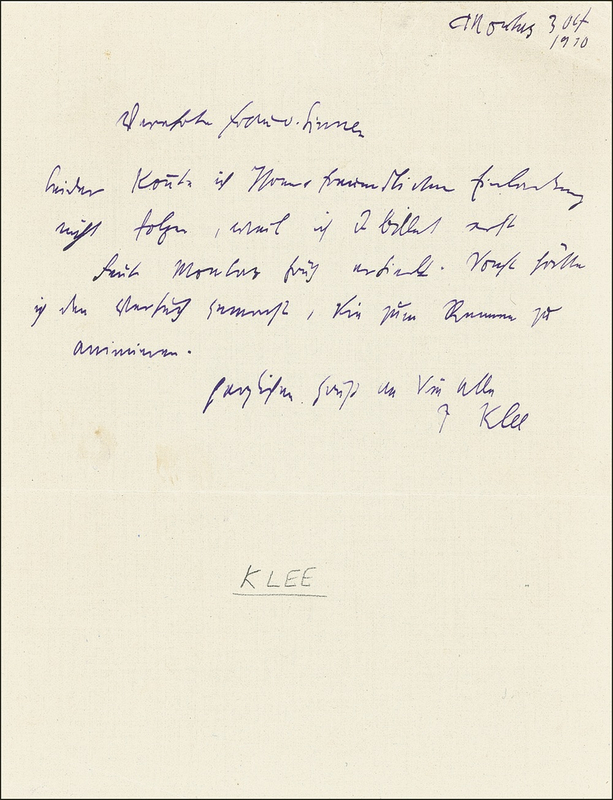 Montag 3 Okt
1910
Verehrte Frau v. Sinner
Leider konte ich Ihrer freundlichen Einladung
nicht folgen, weil ich d billet erst
heute Montag früh erhielt. Sonst hätte
ich den Versuch gemacht, Sie zum kommen zu
animieren.
herzlichen Gruss an Sie Alle
P Klee
KLEE